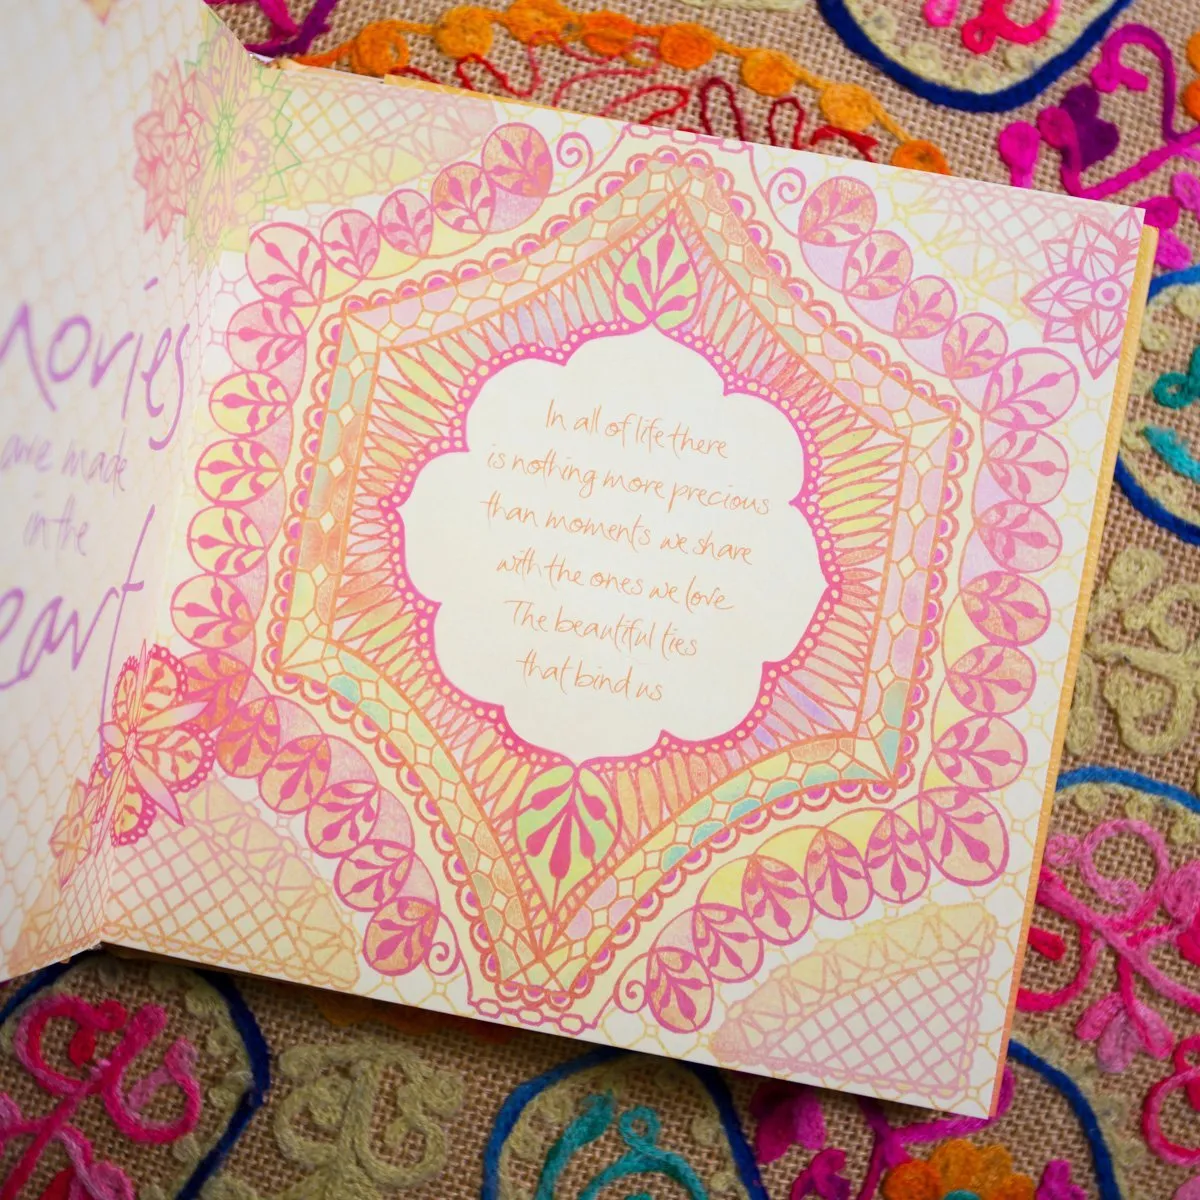 are made
in the
In all of life there
is nothing more precious
than moments we share
with the ones we love
The beautiful ties
that bind us